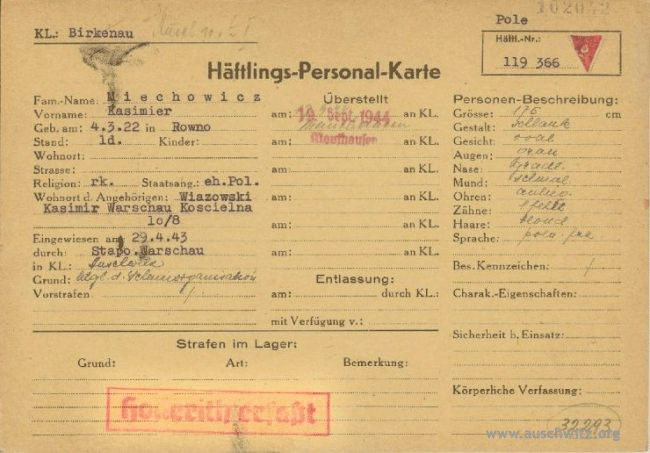 102042
Pole
KL.: Birkenau
Häftl.-Nr.:
119 366
Häftlings-Personal-Karte
Fam.-Name: Miechowicz
Vorname: Kasimier
Geb. am: 4.3.22 in Rowno
Stand: ld. Kinder:
Wohnort:
Strasse:
Religion: rk. Staatsang.: eh.Pol.
Wohnort d. Angehörigen: Wiazowski
Kasimir Warschau Koscielna
lo/8
Eingewiesen am: 29.4.43
durch: Stapo.Warschau
in KL.: Auschwitz
Grund: Mtgl. d. Geheimorganisation
Vorstrafen /
Überstellt
am: 19. Sept. 1944 an KL.
Mauthausen
am: an KL.
am: an KL.
am: an KL.
am: an KL.
am: an KL.
Entlassung:
am: durch KL.:
mit Verfügung v.:
Personen-Beschreibung:
Grösse: 175 cm
Gestalt: schlank
Gesicht: oval
Augen: grau
Nase: gradl.
Mund: schmal
Ohren: anlieg.
Zähne:
Haare: blond
Sprache: poln.
Bes. Kennzeichen: /
Charak.-Eigenschaften:
Sicherheit b. Einsatz:
Körperliche Verfassung:
Strafen im Lager:
Grund: Art: Bemerkung:
Hollerith erfaßt
32293
www.auschwitz.org